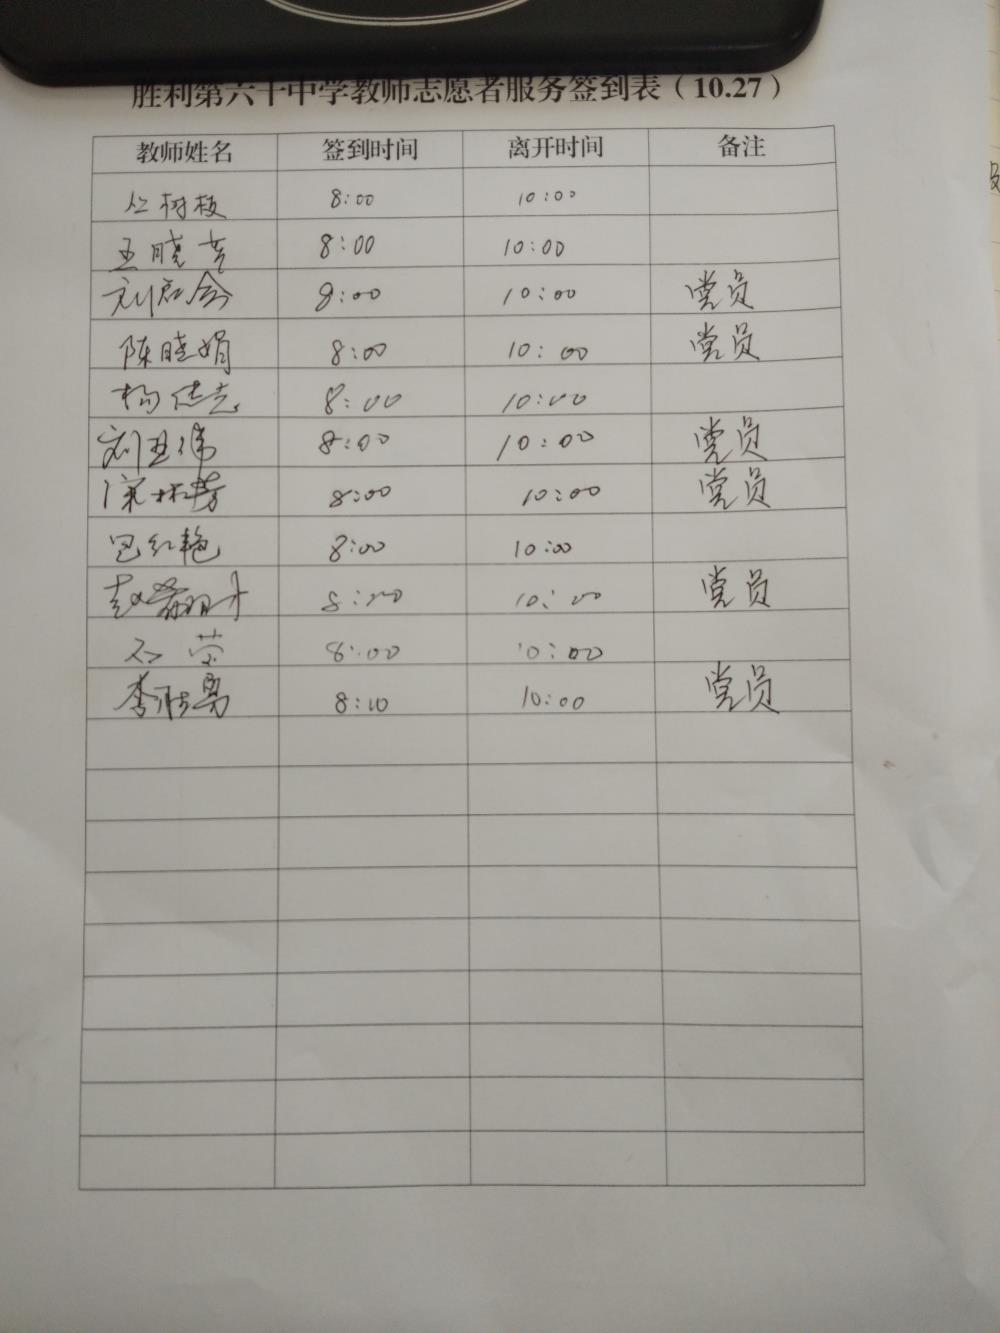 胜利第六十中学教师志愿者服务签到表（10.27）
教师姓名 签到时间 离开时间 备注
丛树枝 8:00 10:00
王晓芳 8:00 10:00
刘 8:00 10:00 党员
陈晓娟 8:00 10:00 党员
杨 8:00 10:00
刘卫伟 8:00 10:00 党员
8:00 10:00 党员
巴红艳 8:00 10:00
赵 8:00 10:00 党员
石莹 8:00 10:00
李胜勇 8:10 10:00 党员